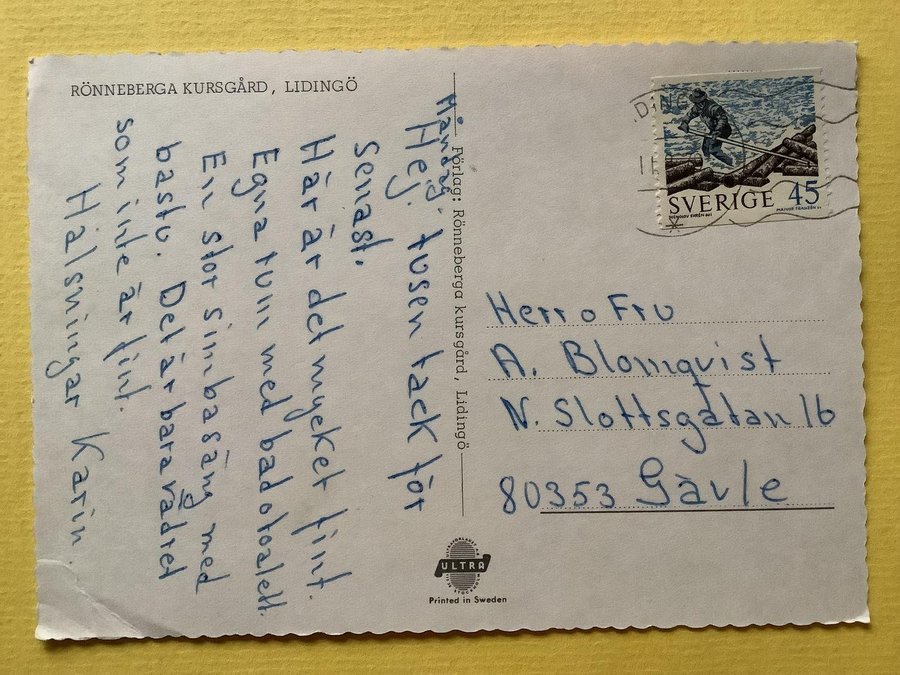 RÖNNEBERGA KURSGÅRD, LIDINGÖ
Måndag.
Hej. tusen tack för
senast.
Här är det mycket fint.
Egna rum med bad o toalett.
En stor simbasäng med
bastu. Det är bara vädret
som inte är fint.
Hälsningar Karin.
Förlag: Rönneberga kursgård, Lidingö
SVERIGE 45
Herr o Fru
A. Blomqvist
N. Slottsgatan 16
80353 Gävle
ULTRA
Printed in Sweden